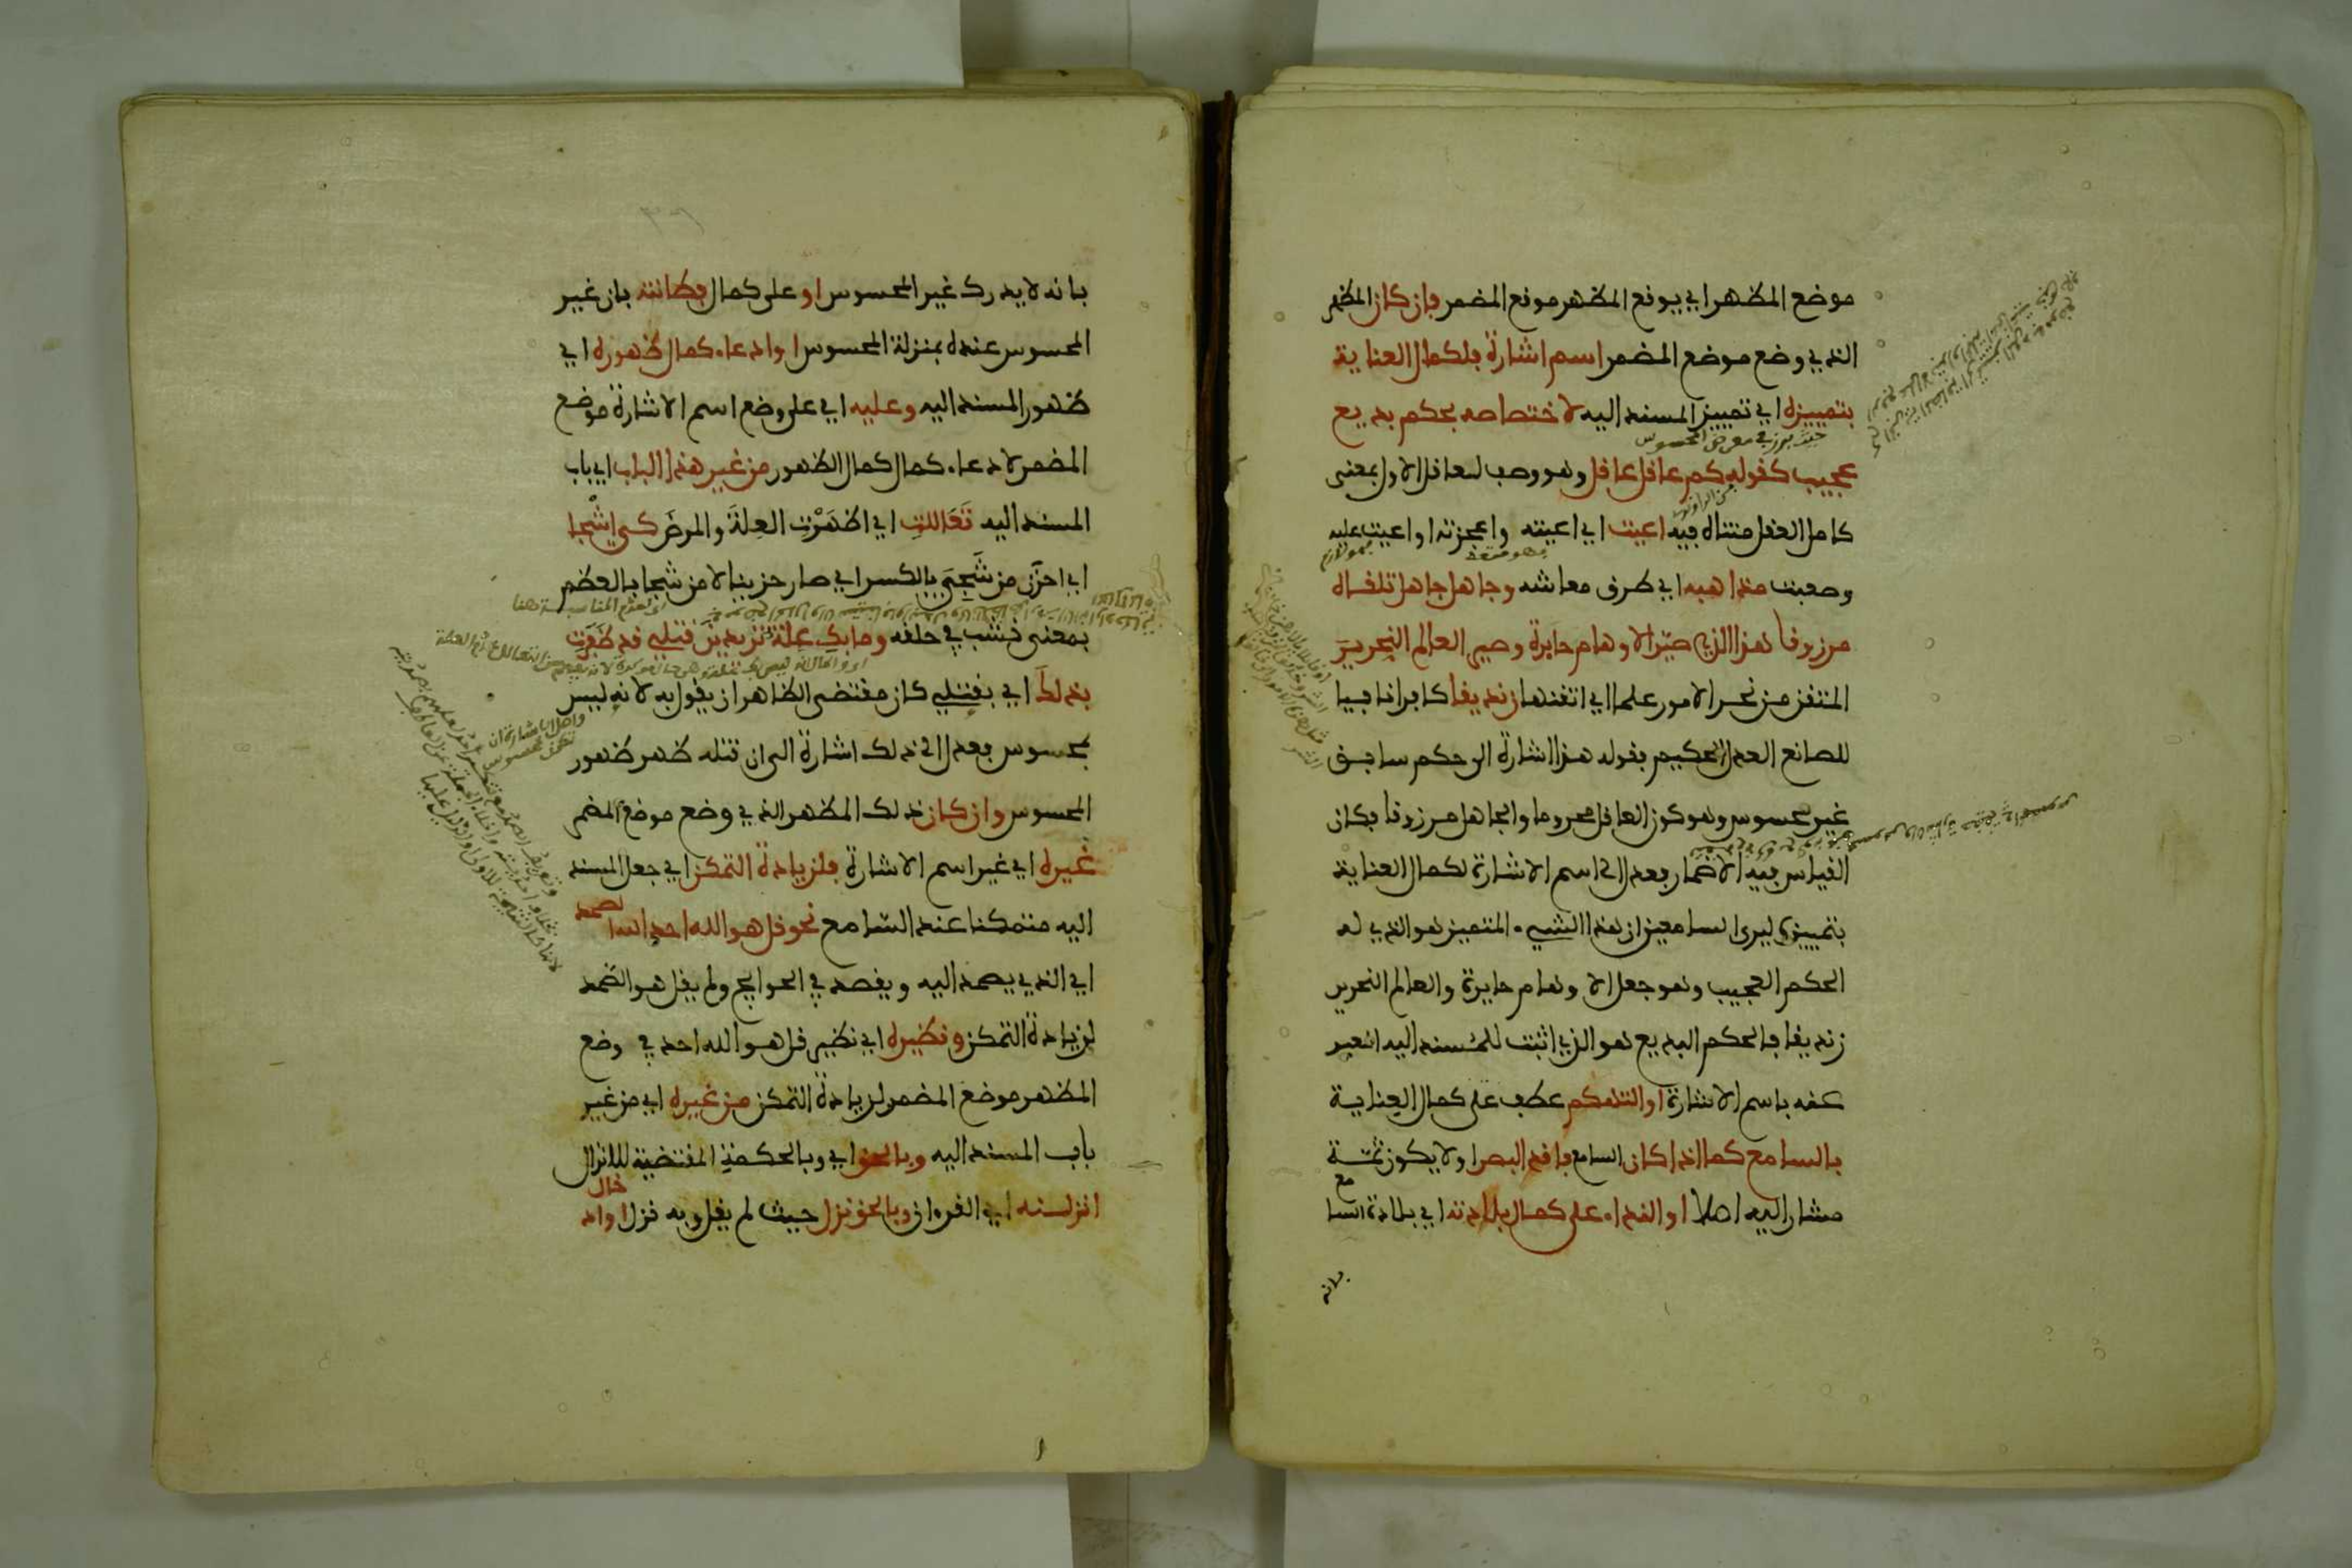 موضع المظهر اي يوقع المظهر موقع المضمر فان كان المظهر
الذي وضع موضع المضمر اسم اشارة فلكمال العناية
بتمييزه اي تمييز المسند اليه لاختصاصه بحكم بديع
حيث برز في معرض المحسوس
عجيب كقوله كم عاقل عاقل وهو وصف لعاقل الاول بمعنى
كامل العقل متناه فيه اعيت اي اعيته واعجزته او اعيت عليه
وصعبت مذاهبه اي طرق معاشه وجاهل جاهل تلقاه
مرزوقا هذا الذي صير الاوهام حايرة وصير العالم النحرير
المتقن من نحر الامور علما اي اتقنها زنديقا كافرا نافيا
للصانع العدل الحكيم بقوله هذا اشارة الى حكم سابق
غير محسوس وهو كون العاقل محروما والجاهل مرزوقا فكان
القياس فيه الاضمار فعدل الى اسم الاشارة لكمال العناية
بتمييزه ليرى السامعين ان هذا الشيء المتميز هو الذي له
الحكم العجيب وهو جعل الاوهام حايرة والعالم النحرير
زنديقا فالحكم البديع هو الذي اثبت للمسند اليه المعبر
عنه باسم الاشارة او التهكم عطف على كمال العناية
بالسامع كما اذا كان السامع فاقد البصر او لا يكون ثمة
مشار اليه اصلا او النداء على كمال بلادته اي بلادة السامع
بانه
بانه لا يدرك غير المحسوس او على كمال فطانته بان غير
المحسوس عنده بمنزلة المحسوس او ادعاء كمال ظهوره اي
ظهور المسند اليه وعليه اي على وضع اسم الاشارة موضع
المضمر لادعاء كمال كمال الظهور من غير هذا الباب اي باب
المسند اليه تعاللت اي اظهرت العلة والمرض كي اشجا
اي احزن من شجي بالكسر اي صار حزينا لا من شجا بالعظم
اي لعدم المناسبة هنا
بمعنى نشب في حلقه وما بك علة تريدين قتلي قد ظفرت
بذلك اي بقتلي كان مقتضى الظاهر ان يقول به لانه ليس
بمحسوس فعدل الى ذلك اشارة الى ان قتله ظهر ظهور
المحسوس وان كان ذلك المظهر الذي وضع موضع المضمر
غيره اي غير اسم الاشارة فلزيادة التمكن اي جعل المسند
اليه متمكنا عند السامع نحو قل هو الله احد الله الصمد
اي الذي يصمد اليه ويقصد في الحوايج ولم يقل هو الصمد
لزيادة التمكن ونظيره اي نظير قل هو الله احد في وضع
المظهر موضع المضمر لزيادة التمكن من غيره اي من غير
باب المسند اليه وبالحق اي وبالحكمة المقتضية للانزال
انزلنه اي القرءان وبالحق نزل حيث لم يقل وبه نزل او ادخال